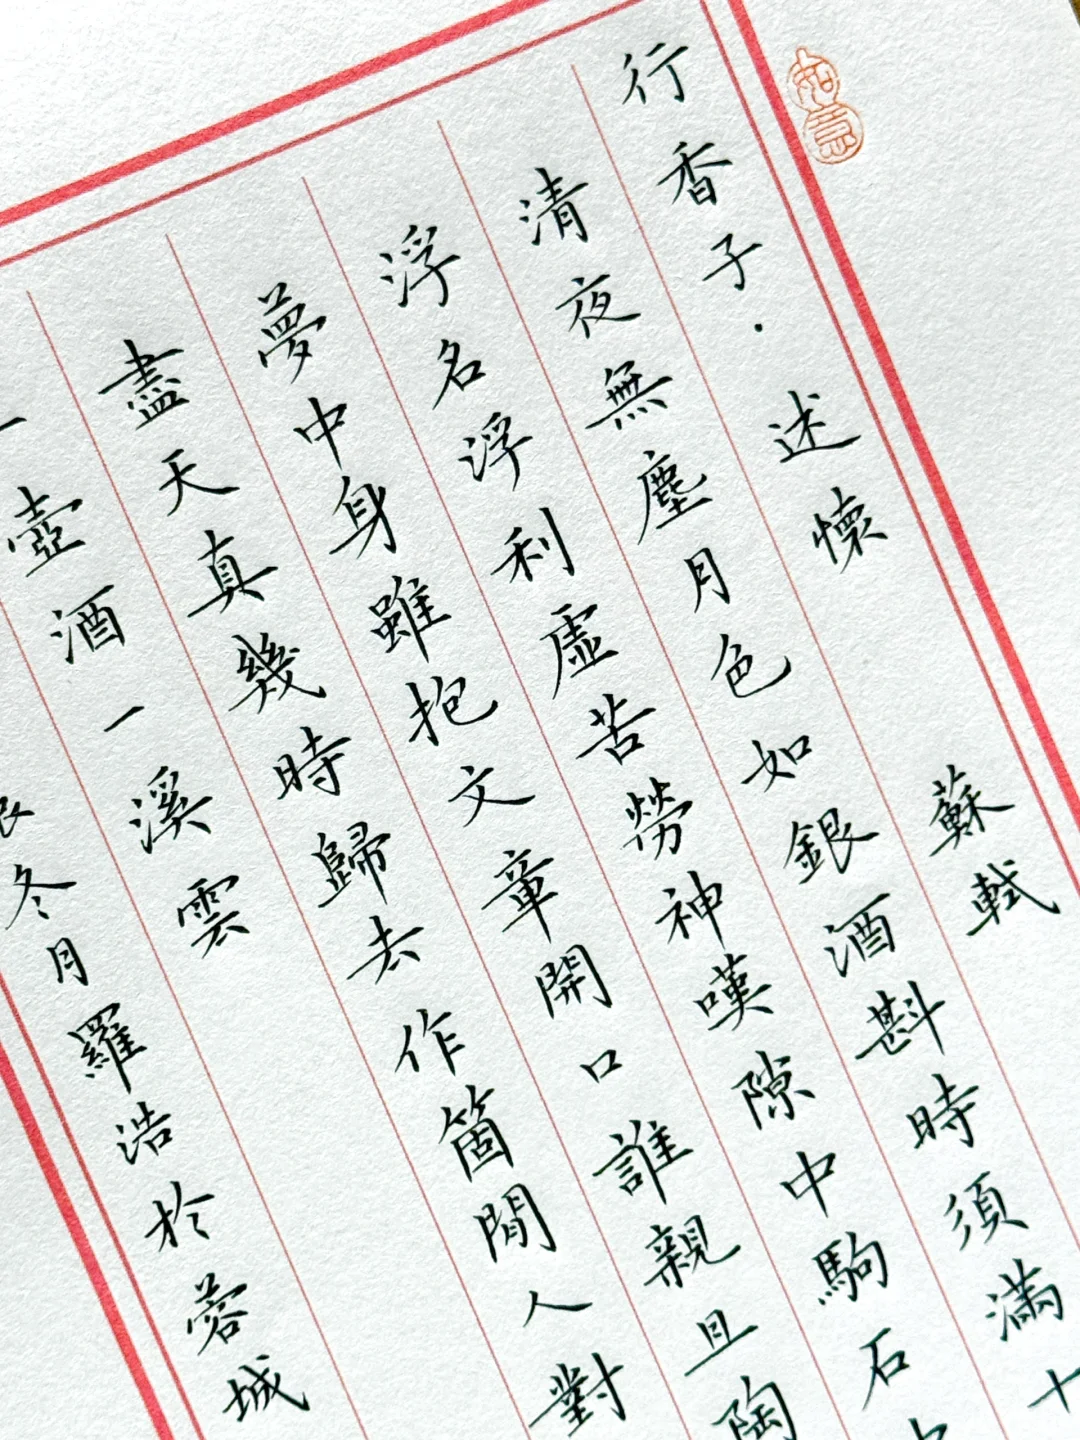 如意
行香子·述懷 蘇軾
清夜無塵月色如銀酒斟時須滿十
浮名浮利虛苦勞神嘆隙中駒石
夢中身雖抱文章開口誰親且陶
盡天真幾時歸去作箇閒人對
一壺酒一溪雲
冬月羅浩於蓉城